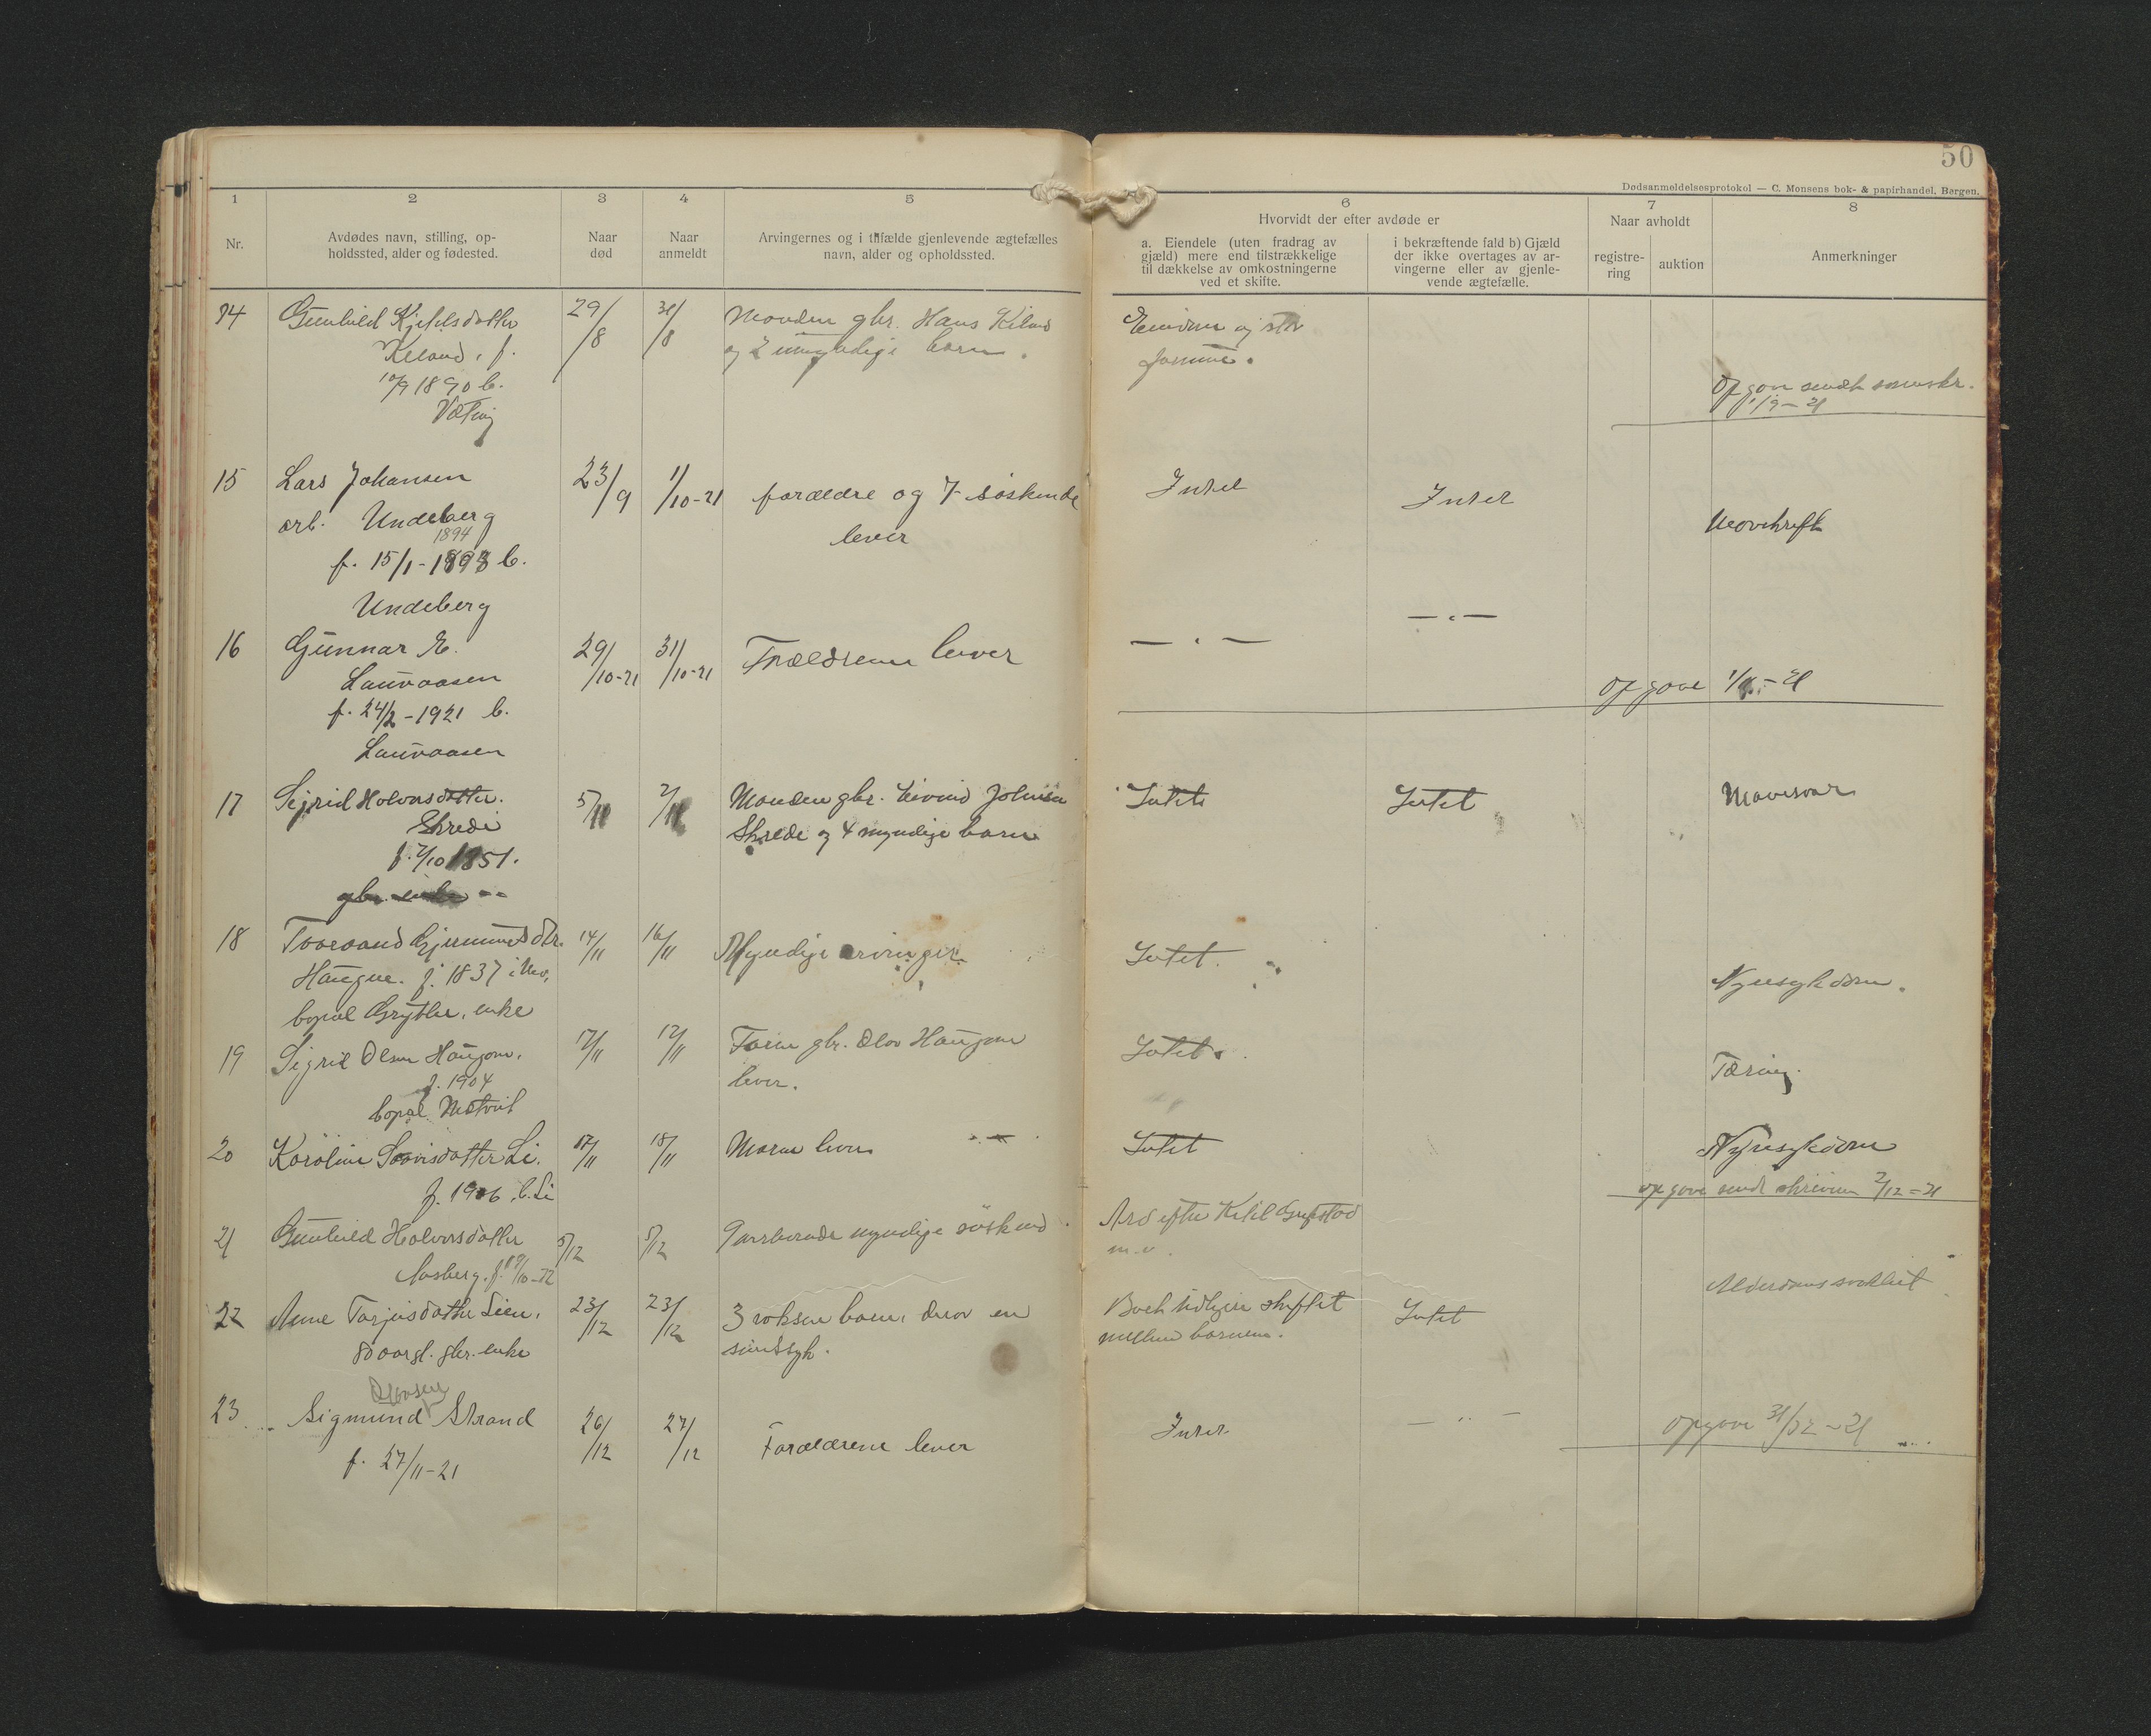 50
Dødsanmeldelsesprotokol — C. Monsens bok- & papirhandel, Bergen.
1 2 3 4 5 6 7 8
Nr.
Avdødes navn, stilling, op-
holdssted, alder og fødested.
Naar
død
Naar
anmeldt
Arvingernes og i tilfælde gjenlevende ægtefælles
navn, alder og opholdssted.
Hvorvidt der efter avdøde er
a. Eiendele (uten fradrag av
gjæld) mere end tilstrækkelige
til dækkelse av omkostningerne
ved et skifte.
i bekræftende fald b) Gjæld
der ikke overtages av ar-
vingerne eller av gjenle-
vende ægtefælle.
Naar avholdt
registre-
ring
auktion
Anmerkninger
14 Gunhild Kjetilsdatter 29/8 31/8 Manden gbr. Hans Kiland
Kiland, f. og 2 umyndige barn.
10/9 1890 b.
Opgave sendt
1/9-21
15 Lars Johansen 23/9 1/10-21 forældre og 7 søskende Intet Intet
arb. Undeberg lever
1894
f. 15/1-1893 b.
Undeberg
16 Gunnar E. 29/10-21 31/10-21 Forældrene lever — " — — " —
Lauvaasen
f. 24/2-1921 b.
Lauvaasen
opgave 1/11-21
17 Sigrid Holvorsdatter. 5/11 7/11 Manden gbr. Eivind Johnsen Intet Intet Mavesaar
Skrede Skrede og 4 myndige barn
f. 7/10 1851.
18 14/11 16/11 Myndige arvinger. Intet. Nyresykdom.
Haugne. f. 1837 i
bopæl enke
19 Sigrid Olsen Haugom. 17/11 17/11 Faren gbr. Olav Haugom Intet. Tæring.
f. 1904 lever.
bopæl
20 Karoline Li. 17/11 18/11 Moren lever Intet Nyresykdom
f. 1906, b. Li
opgave sendt skriveren 2/12-21
21 Gunhild Holvorsdatter 5/12 5/12 myndige søskend Arv efter Kitil
Aasberg. f. m.v.
22 Anne Tarjeisdatter Lien. 23/12 23/12 3 voksne barn, derav en skiftet Intet Alderdomssvakhet
80 aar gl. gbr. enke sindssyk. mellem barnene.
Olavsen
23 Sigmund Strand 26/12 27/12 Forældrene lever Intet — " —
f. 27/11-21
opgave 31/12-21